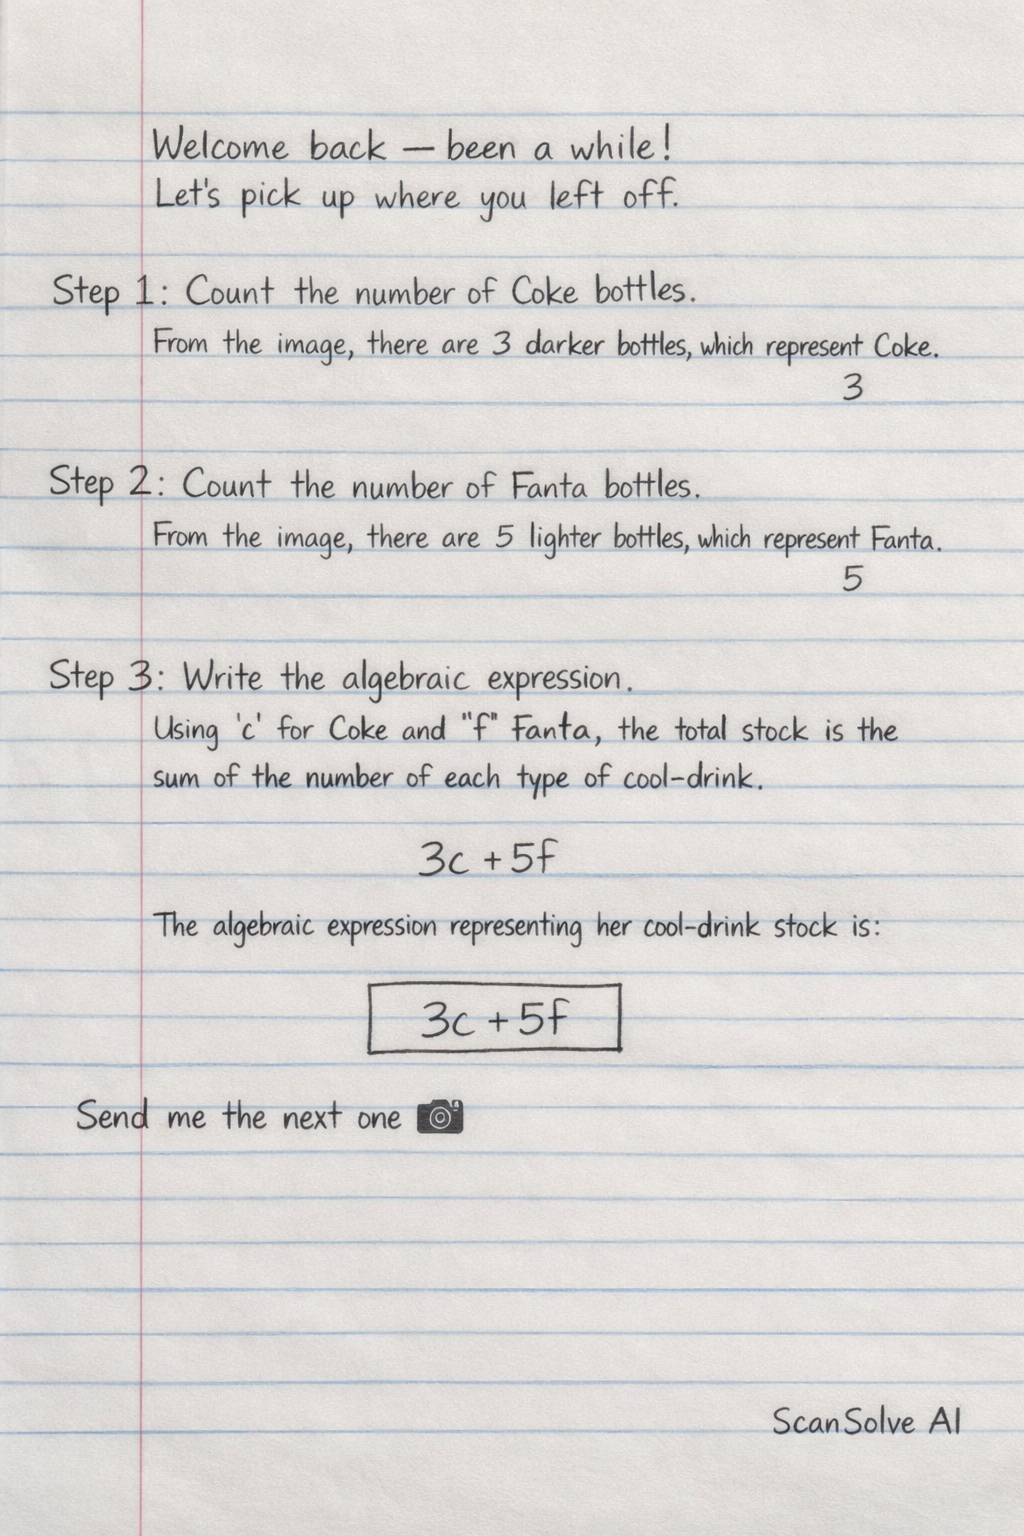 Welcome back — been a while!
Let's pick up where you left off.
Step 1: Count the number of Coke bottles.
From the image, there are 3 darker bottles, which represent Coke.
3
Step 2: Count the number of Fanta bottles.
From the image, there are 5 lighter bottles, which represent Fanta.
5
Step 3: Write the algebraic expression.
Using 'c' for Coke and "f" Fanta, the total stock is the
sum of the number of each type of cool-drink.
3c + 5f
The algebraic expression representing her cool-drink stock is:
3c + 5f
Send me the next one 📷
ScanSolve AI